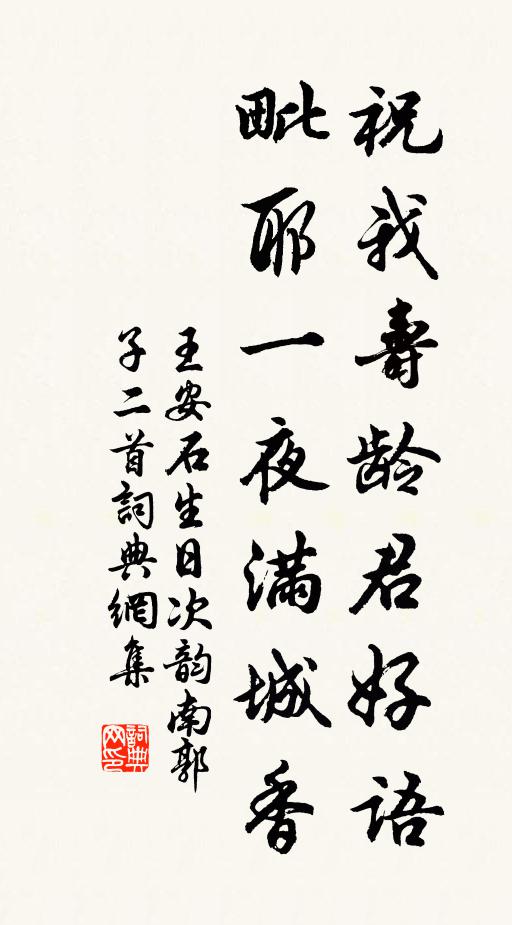 祝我壽龄君好语
毗耶一夜滿城香
王安石生日次韵南郭
子二首詞典網集
詞典
网印